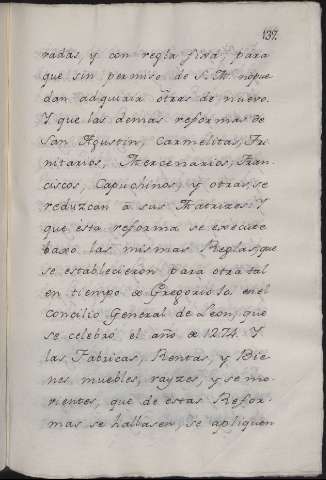 137.
radas, y con regla fixa, para
que sin permiso de S. M. nopue
dan adquirir otras de nuevo.
Y que las demas reformas de
San Agustin, Carmelitas, Tri
nitarios, Mercenarios, Fran-
ciscos, Capuchinos, y otras, se
reduzcan à sus Matrizes: Y
que esta reforma se execute
baxo las mismas Reglas, que
se establecieron para otra tal
en tiempo de Gregorio 10. en el
Concilio General de Leon, que
se celebrò el año de 1274. Y
las Fabricas, Rentas, y Bie-
nes, muebles, rayzes, y semo-
vientes, que de estas Refor-
mas se hallasen, se apliquen